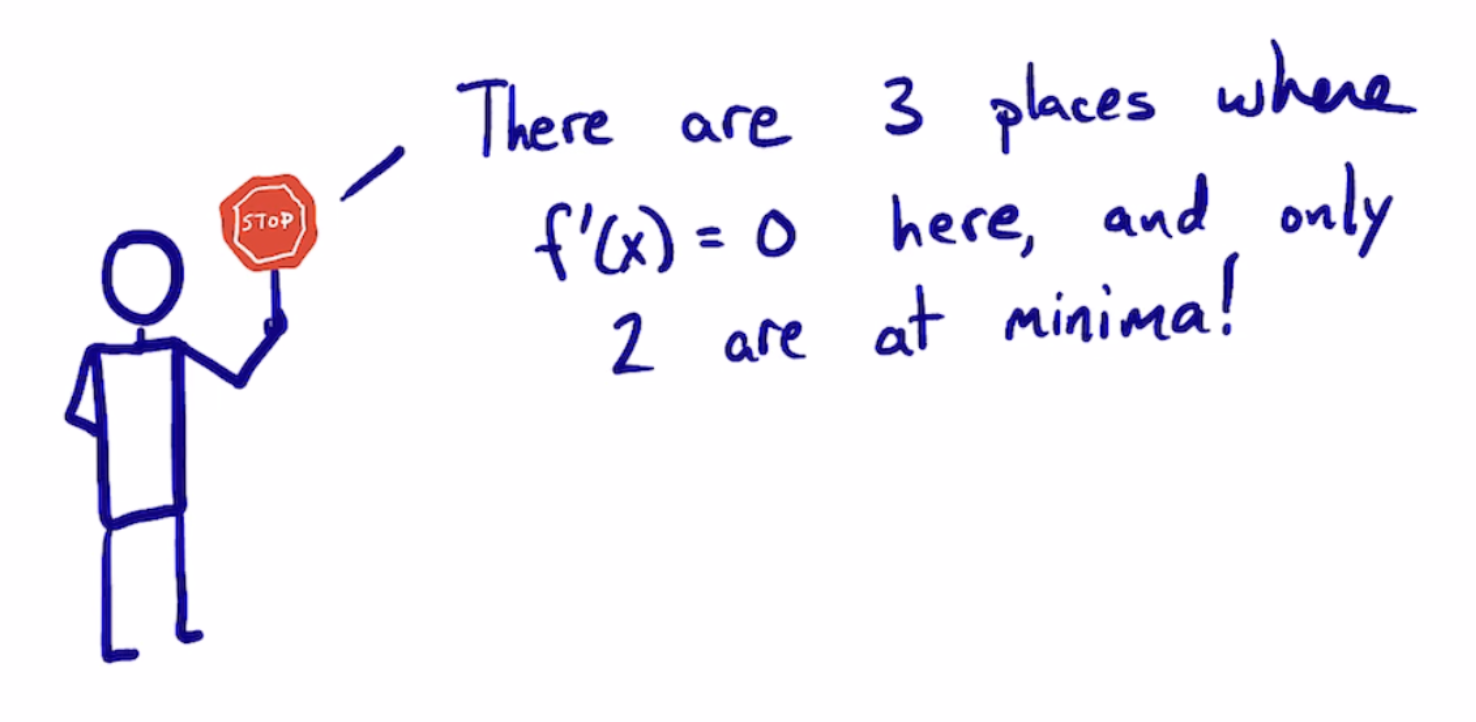 STOP
There are 3 places where
f'(x) = 0 here, and only
2 are at minima!